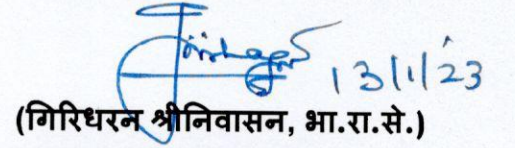 13/1/23
(गिरिधरन श्रीनिवासन, भा.रा.से.)